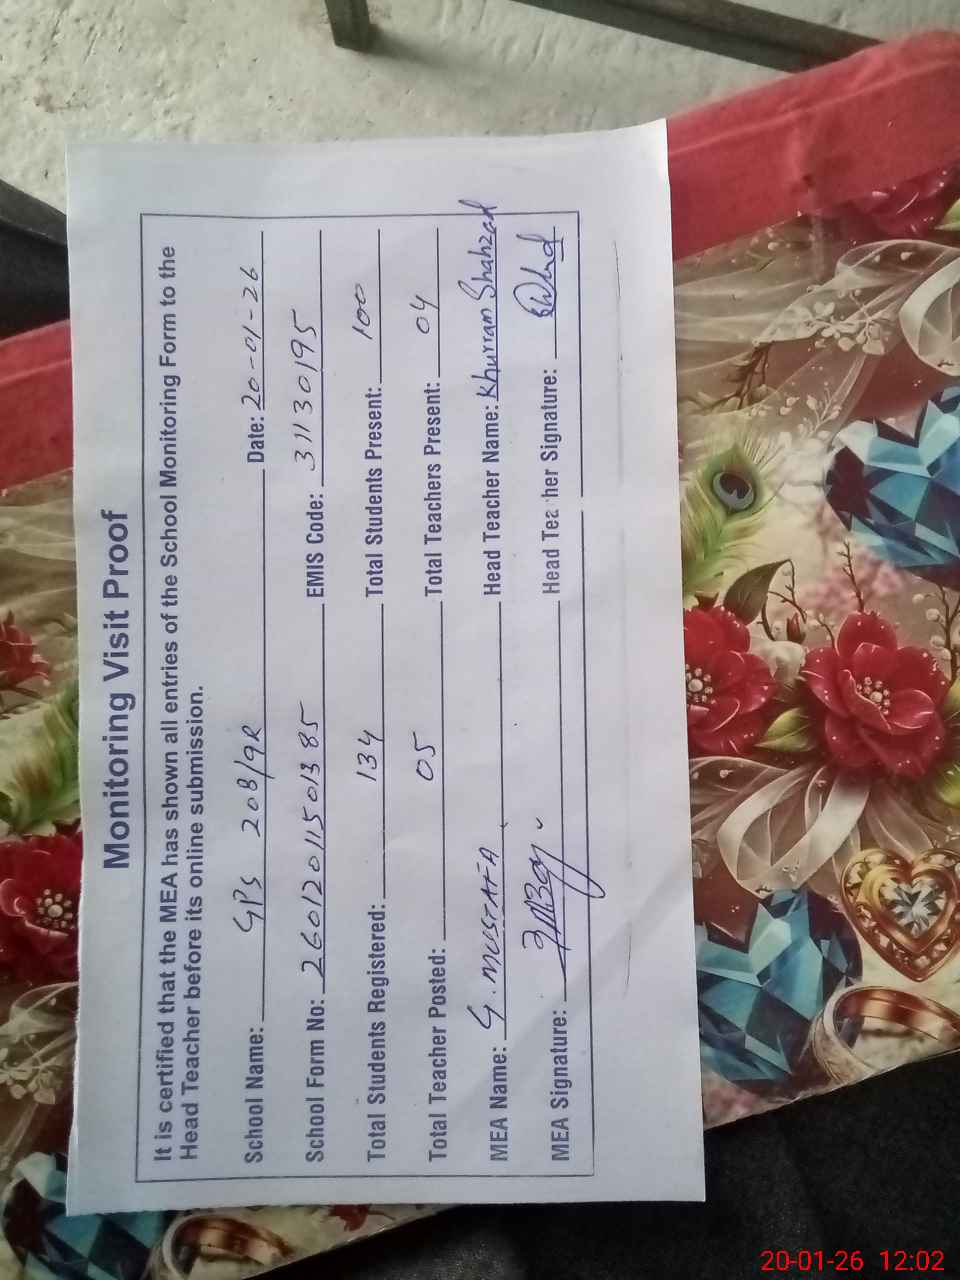 Monitoring Visit Proof
It is certified that the MEA has shown all entries of the School Monitoring Form to the
Head Teacher before its online submission.
School Name: GPS 208/9R Date: 20-01-26
School Form No: 26012011501385 EMIS Code: 31130195
Total Students Registered: 134 Total Students Present: 100
Total Teacher Posted: 05 Total Teachers Present: 04
MEA Name: G. MUSTAFA Head Teacher Name: Khurram Shahzad
MEA Signature: Head Teacher Signature:
20-01-26 12:02